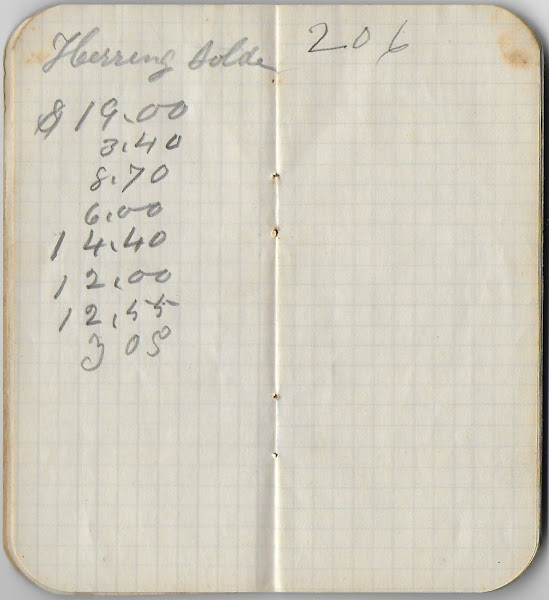 Herring Solde
$19.00
3.40
8.70
6.00
14.40
12.00
12.55
3 05
206